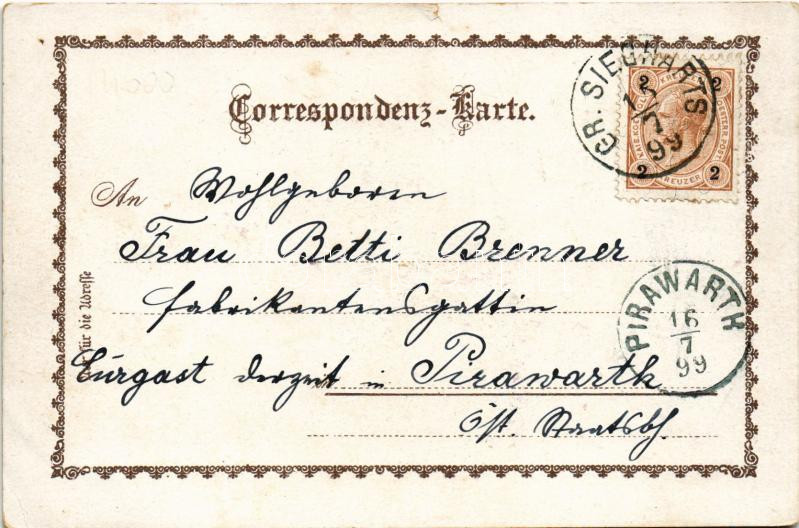 Correspondenz-Karte.
GR. SIEGHARTS
15/7
99
2 2
KREUZER
2 2
An Wohlgeboren
Frau Betti Brenner
Fabrikantensgattin
Curgast derzeit in Pirawarth
Öst. Staatsbh.
Für die Adresse
PIRAWARTH
16/7
99